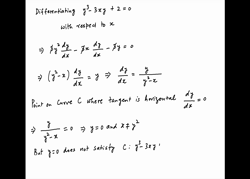 Differentiating y³-3xy+2=0
with respect to x
⇒ 3y² dy/dx - 3x dy/dx - 3y = 0
⇒ (y²-x) dy/dx = y ⇒ dy/dx = y/(y²-x)
Point on curve C where tangent is horizontal dy/dx = 0
⇒ y/(y²-x) = 0 ⇒ y=0 and x≠y²
But y=0 does not satisfy C: y³-3xy